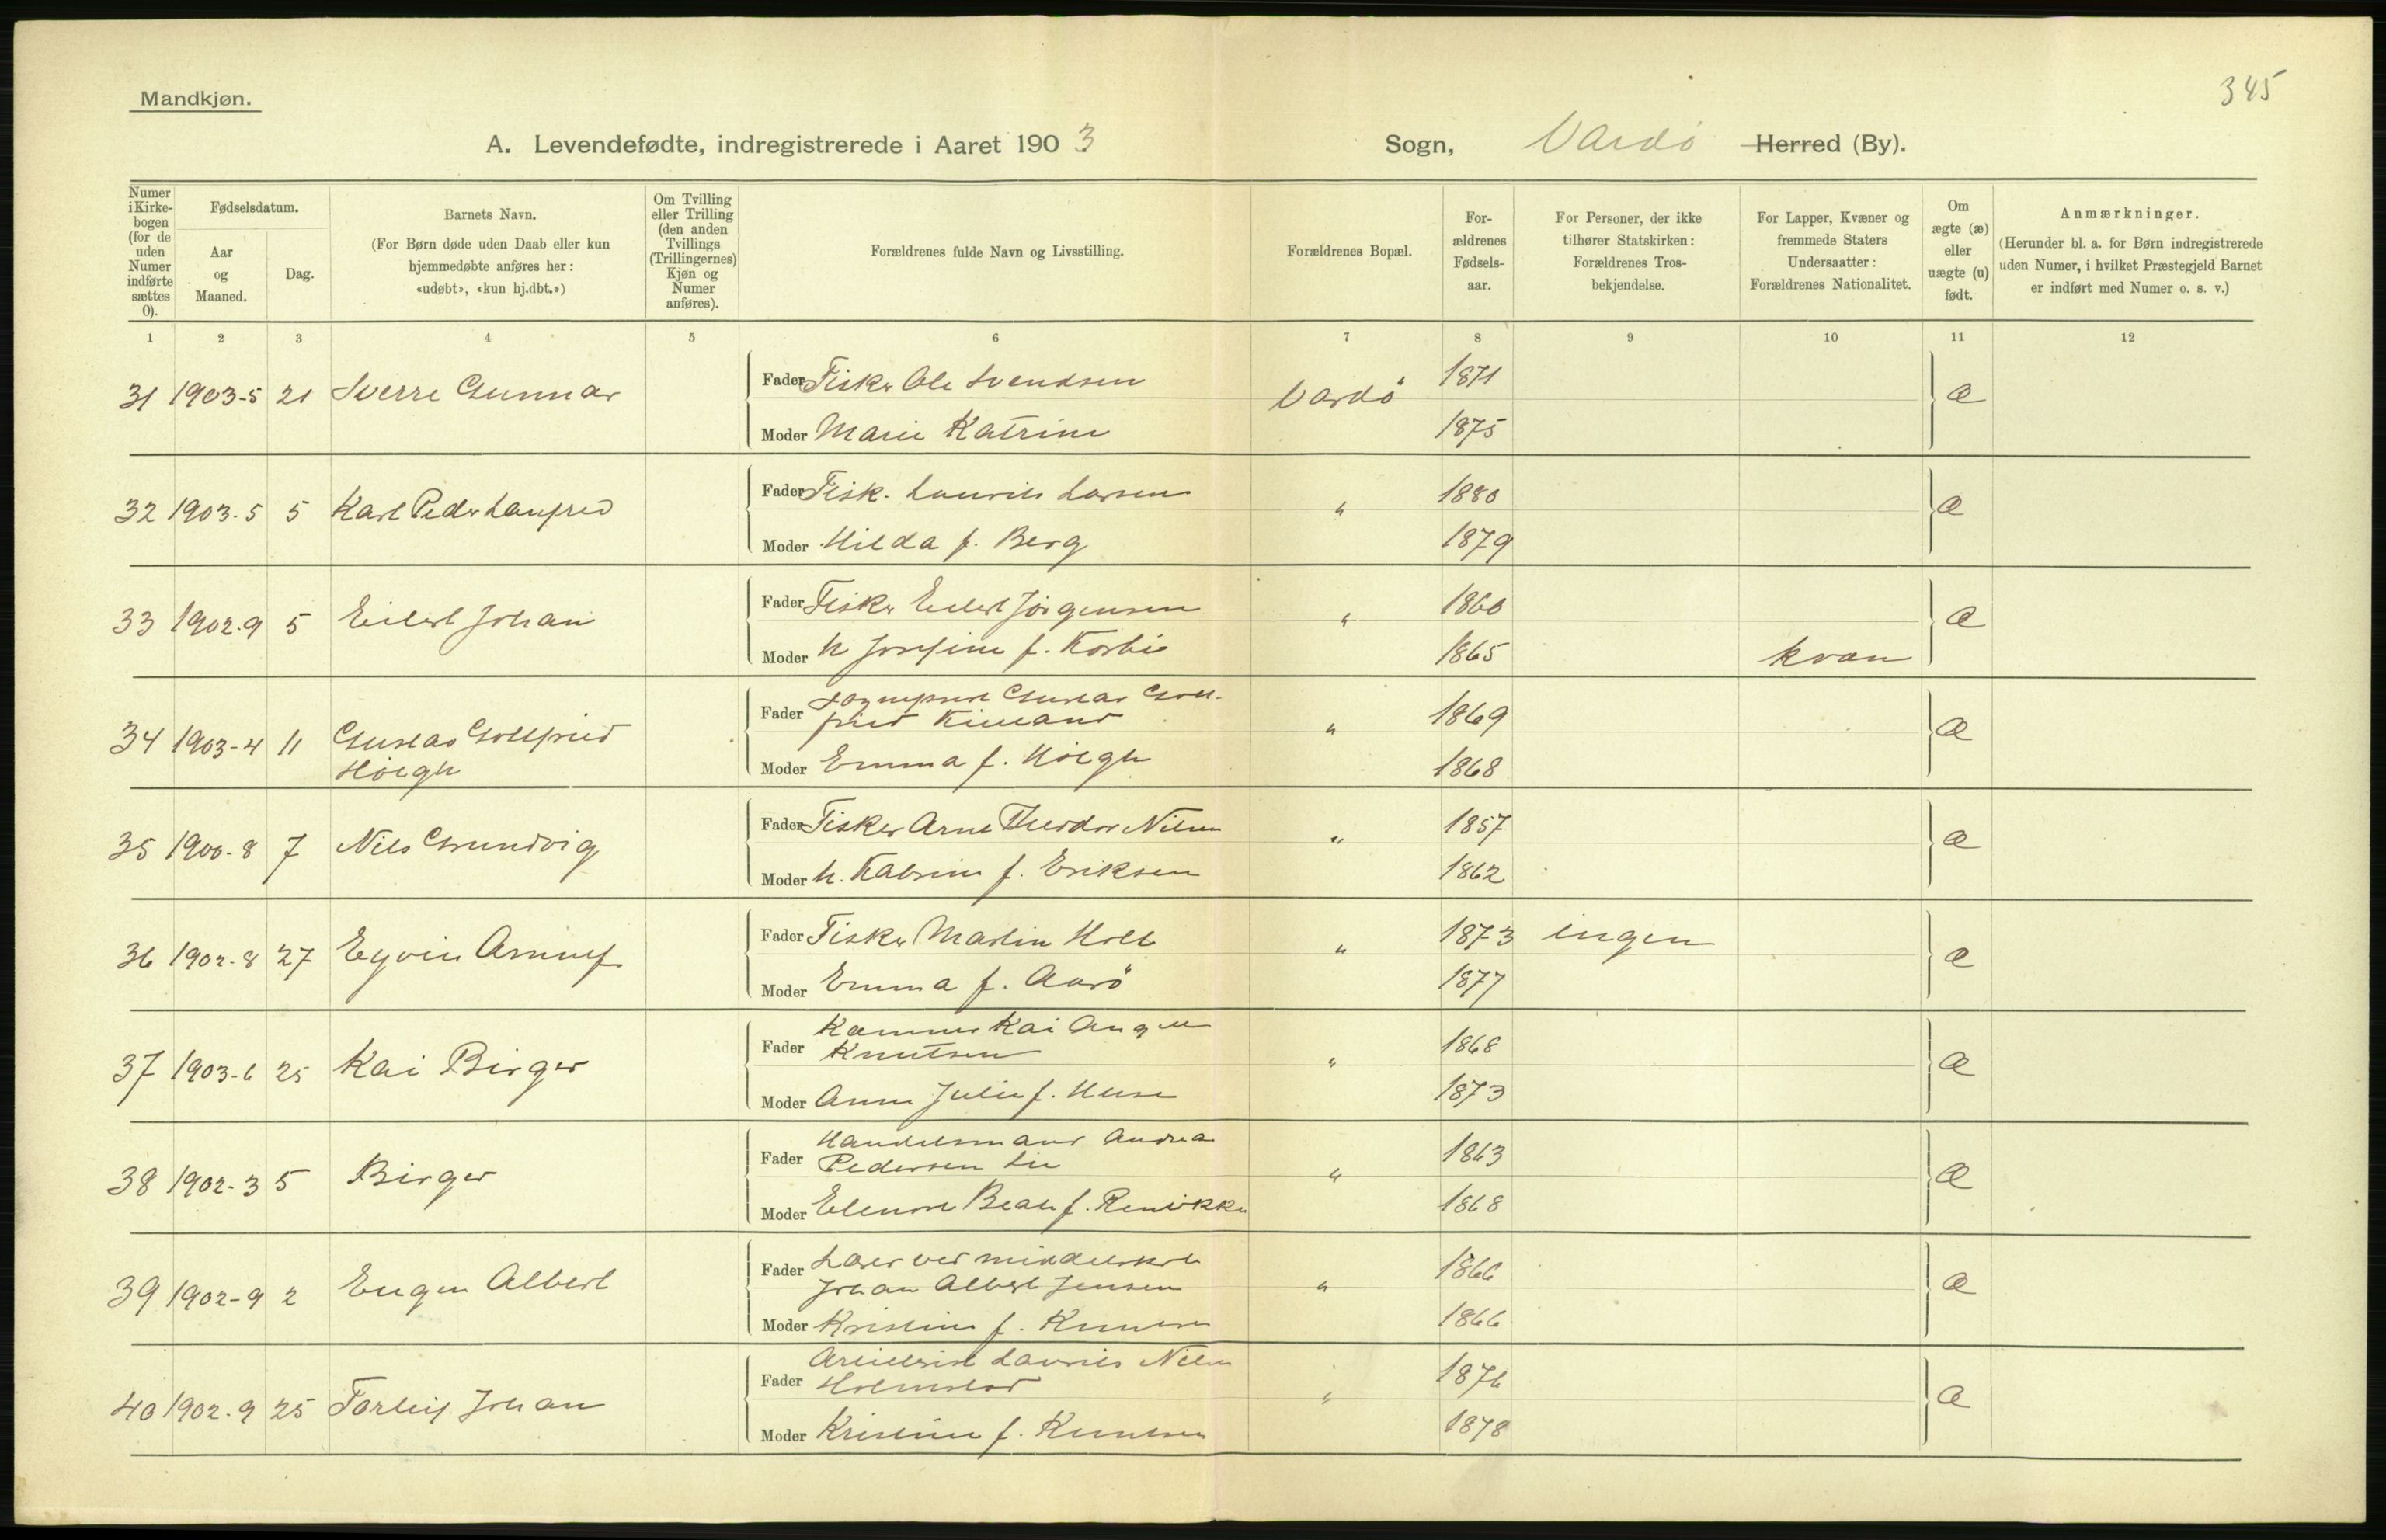 345
Mandkjøn.
A. Levendefødte, indregistrerede i Aaret 1903 Sogn, Vardö Herred (By).
Numer i Kirkebogen (for de uden Numer indførte sættes 0).
Fødselsdatum.
Aar og Maaned.
Dag.
Barnets Navn.
(For Børn døde uden Daab eller kun hjemmedøbte anføres her: «udøbt», «kun hj.dbt.»)
Om Tvilling eller Trilling (den anden Tvillings (Trillingernes) Kjøn og Numer anføres).
Forældrenes fulde Navn og Livsstilling.
Forældrenes Bopæl.
Forældrenes Fødselsaar.
For Personer, der ikke tilhører Statskirken: Forældrenes Trosbekjendelse.
For Lapper, Kvæner og fremmede Staters Undersaatter: Forældrenes Nationalitet.
Om ægte (æ) eller uægte (u) født.
Anmærkninger.
(Herunder bl. a. for Børn indregistrerede uden Numer, i hvilket Præstegjeld Barnet er indført med Numer o. s. v.)
1 2 3 4 5 6 7 8 9 10 11 12
31 1903-5 21 Sverre Gunnar Fader Fisker Ole Svendsen Vardö 1871 æ
Moder Marie Katrine 1875
32 1903-5 5 Karl Peder Lanfred Fader Fisk. Laurits Larsen " 1880 æ
Moder Hilda f. Berg 1879
33 1902-9 5 Eilert Johan Fader Fisker Eilert Jörgensen " 1860 æ
Moder h Josefine f. 1865 kvæn
34 1903-4 11 Gustav Gottfried Höegh Fader Gustav Gottfried " 1869 æ
Moder Emma f. Höegh 1868
35 1900-8 7 Nils Grundvig Fader Fisker Arne Theodor Nilsen " 1857 æ
Moder h. Katrine f. Eriksen 1862
36 1902-8 27 Eyvin Arnulf Fader Fisker Martin Holt " 1873 ingen æ
Moder Emma f. Aarö 1877
37 1903-6 25 Kai Birger Fader Kai
Knutsen " 1868 æ
Moder Anna Julie f. 1873
38 1902-3 5 Birger Fader Handelsmand Andrea
Pedersen Lie " 1863 æ
Moder Elenore Beate f. 1868
39 1902-9 2 Eugen Albert Fader Lærer ved middelskole
Johan Albert Jensen " 1866 æ
Moder Kristine f. Knutsen 1866
40 1902-9 25 Torleif Johan Fader Artillerist Laurits Nilsen
Holmstad " 1876 æ
Moder Kristine f. Knutsen 1878